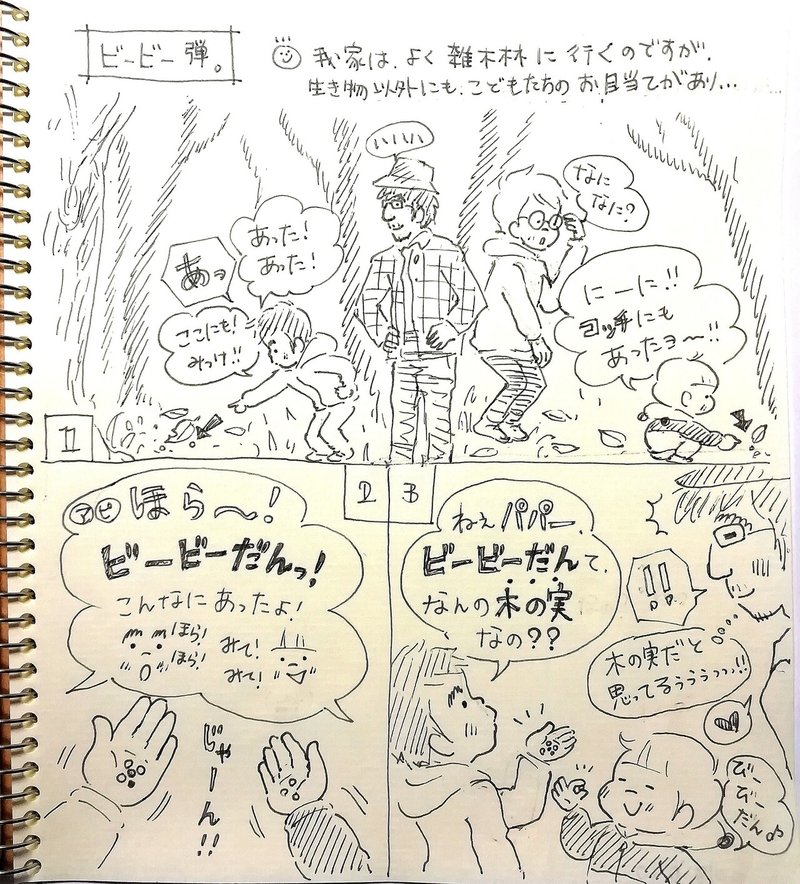 ビービー弾。
我が家は、よく雑木林に行くのですが、
生き物以外にも、こどもたちのお目当てがあり…
ハハハ
なに
なに?
あった!
あった!
あッ
ここにも!
みっけ!!
にーに!!
コッチにも
あったョ〜!!
1
2
3
アピ ほら〜!
ビービーだんっ!
こんなにあったよ!
ほら!
ほら!
みて!
みて!
じゃーん!!
ねぇパパー、
ビービーだんて、
なんの木の実
なの??
!!
木の実だと
思ってるぅぅぅっっ!!
びー
びー
だん♪